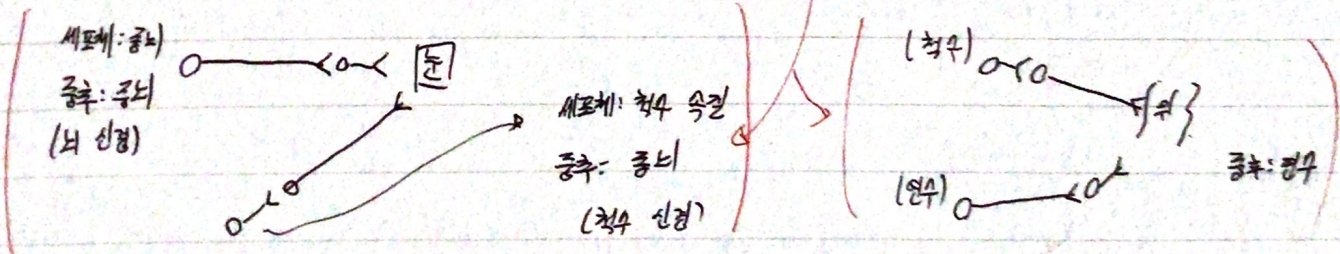 세포체: 중뇌
중추: 중뇌
(뇌 신경)
눈
세포체: 척수 속질
중추: 중뇌
(척수 신경)
(척수)
위
(연수)
중추: 연수